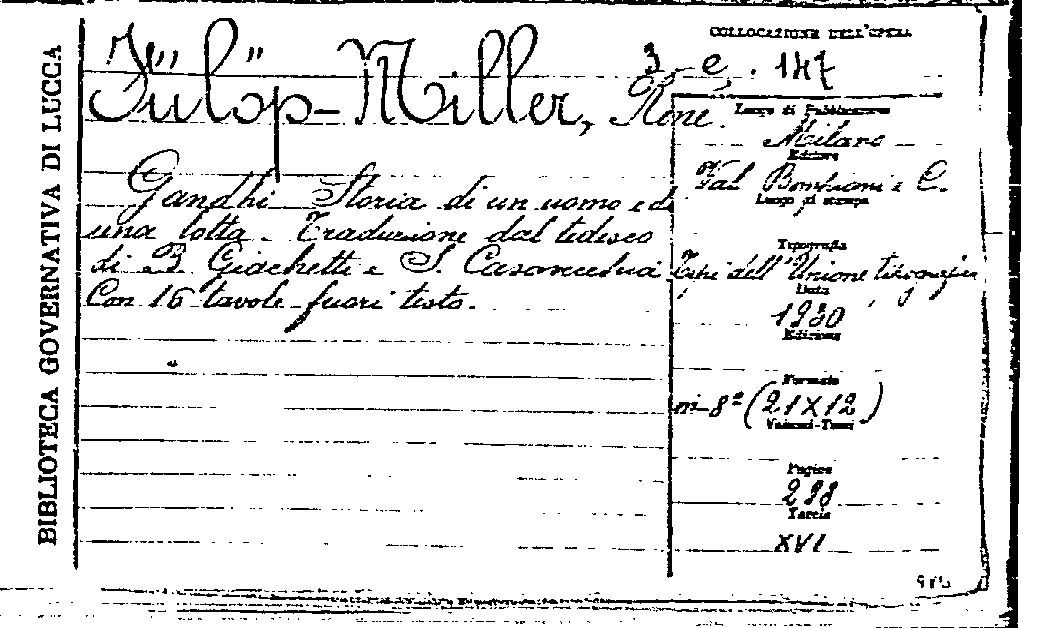 BIBLIOTECA GOVERNATIVA DI LUCCA
Fülöp-Miller, René.
Gandhi Storia di un uomo e di
una lotta. Traduzione dal tedesco
di B. Giachetti e S.
Con 16 tavole fuori testo.
COLLOCAZIONE DELL'OPERA
3. e. 147
Luogo di Pubblicazione
Milano
Editore
Val. Bompiani e C.
Luogo di stampa
Tipografia
Tipi dell'Unione tipografica
Data
1930
Edizione
Formato
in-8º (21X12)
Volumi-Tomi
Pagine
298
Tavole
XVI